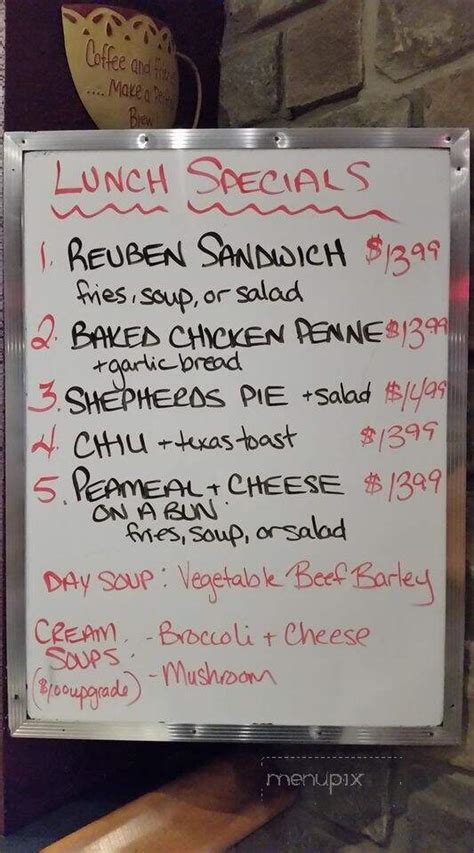 Coffee and
.... Make a
Brew
LUNCH SPECIALS
1. REUBEN SANDWICH $13.99
fries, soup, or salad
2. BAKED CHICKEN PENNE $13.99
+ garlic bread
3. SHEPHERDS PIE + salad $14.99
4. CHILI + texas toast $13.99
5. PEAMEAL + CHEESE $13.99
ON A BUN
fries, soup, or salad
DAY SOUP: Vegetable Beef Barley
CREAM - Broccoli + Cheese
SOUPS:
($1.00 upgrade) - Mushroom
menupix